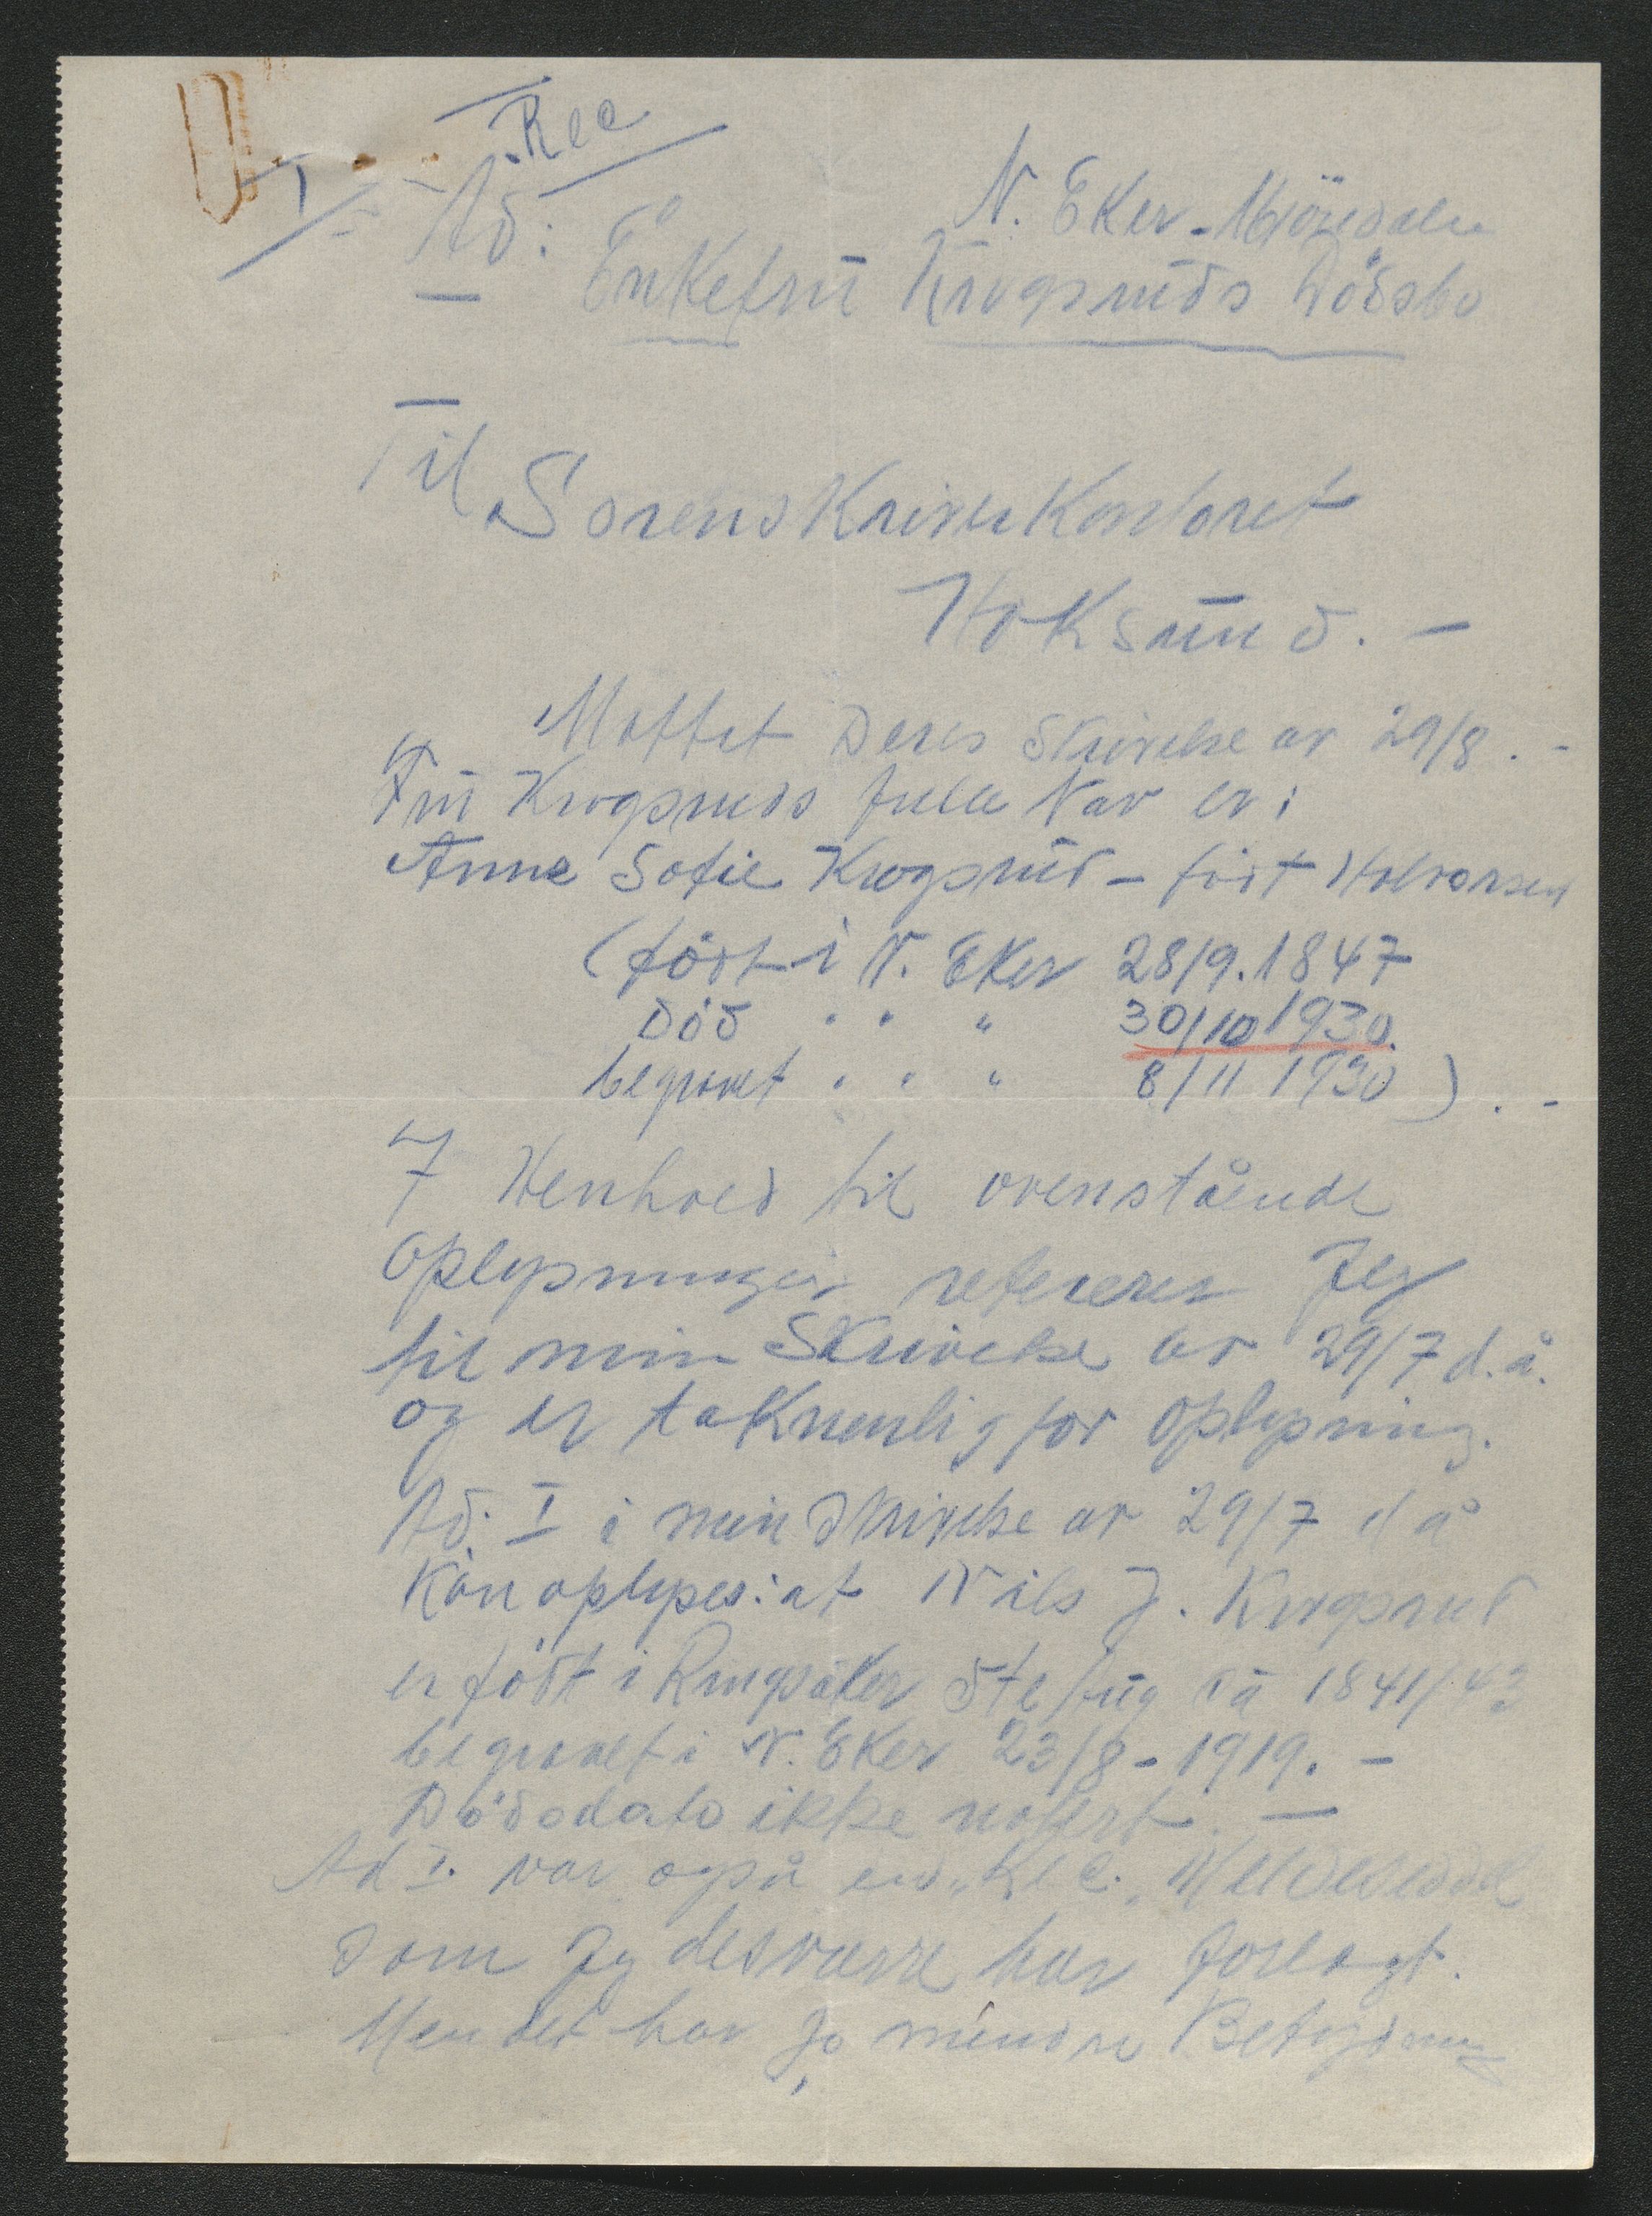 Rec
I
N. Eker - Mjöndalen
Ad: Enkefru Krogsruds Dödsbo
Til
Sorenskriverkontoret
Hoksund. -
Mottat Deres Skrivelse av 29/8. -
Fru Krogsruds fulle Nav er:
Anne Sofie Krogsrud - födt Halvorsen
(födt i N. Eker 28/9. 1847
död " " " 30/10 1930.
begravet " " " 8/11 1930). -
I Henhold til ovenstående
Oplysninger refererer Jeg
til min Skrivelse av 29/7 d.å.
og er taknemlig for Oplysning.
Ad. I i min Skrivelse av 29/7 d å
kan oplyses: at Nils J. Krogsrud
er födt i Ringsaker 5te Aug 1841/43
begravet i N. Eker 23/8 - 1919. -
Dödsdato ikke notert. -
Ad I. var også en "Rec."
som Jeg desværre har forlagt.
Men det har Jo mindre Betydning